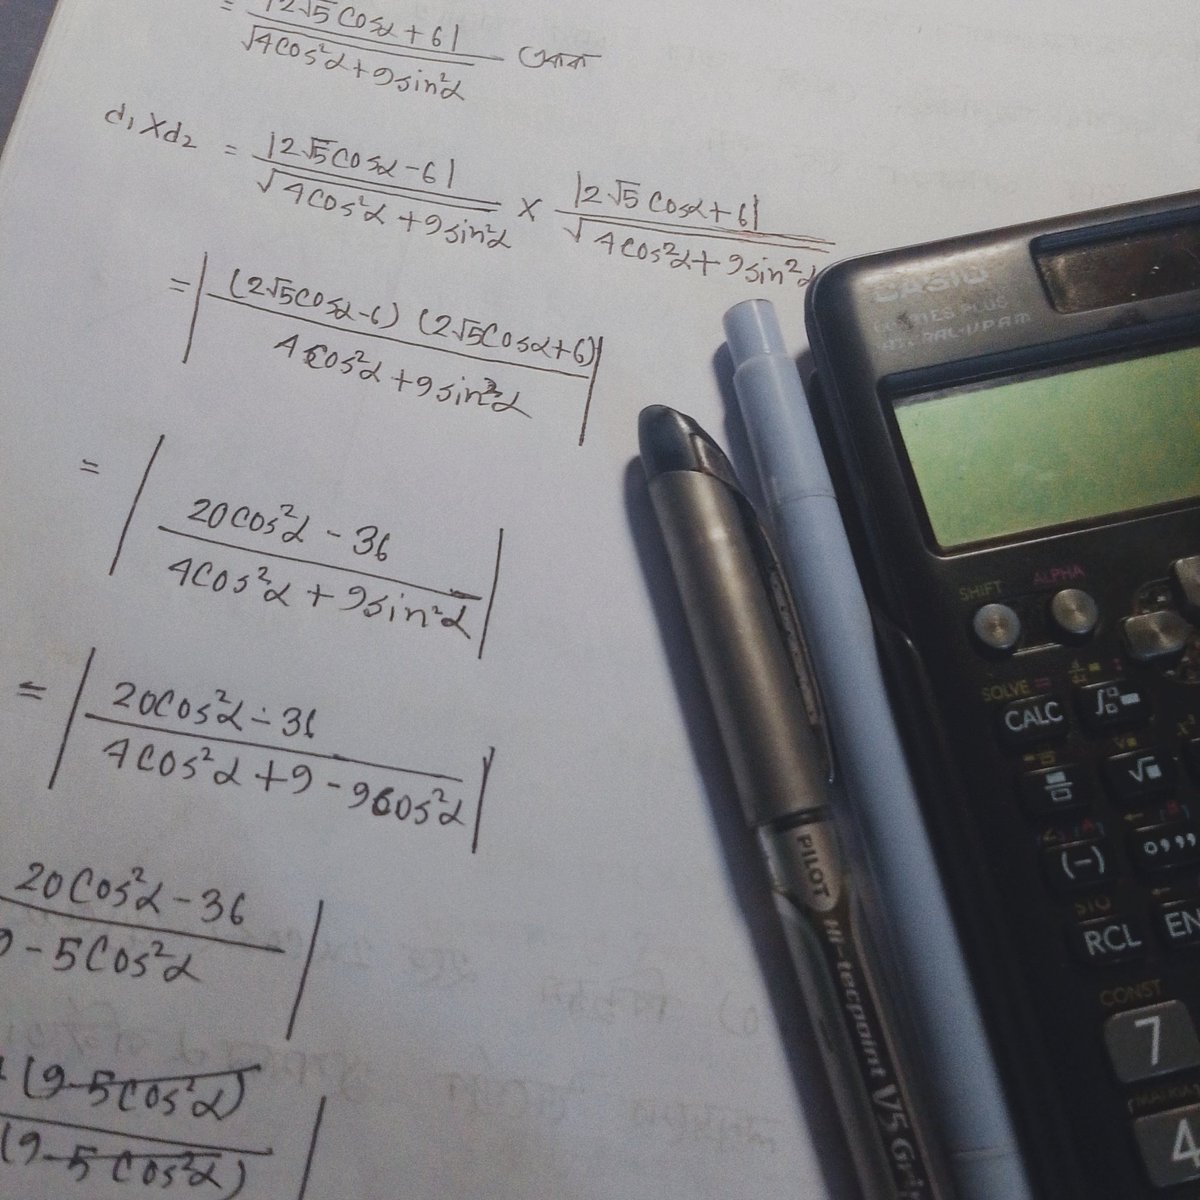 = |2√5 cosα + 6| / √4cos²α + 9sin²α একক
d₁ X d₂ = |2√5 cosα - 6| / √4cos²α + 9sin²α X |2√5 cosα + 6| / √4cos²α + 9sin²α
= | (2√5cosα - 6) (2√5cosα + 6) / 4cos²α + 9sin²α |
= | 20cos²α - 36 / 4cos²α + 9sin²α |
= | 20cos²α - 36 / 4cos²α + 9 - 9cos²α |
20cos²α - 36 / 9 - 5cos²α |
(9-5cos²α) / (9-5cos²α) |
CASIO
SHIFT ALPHA
SOLVE =
CALC
(-)
STO
RCL
EN
CONST
7
4
PILOT Hi-tecpoint V5 Gri